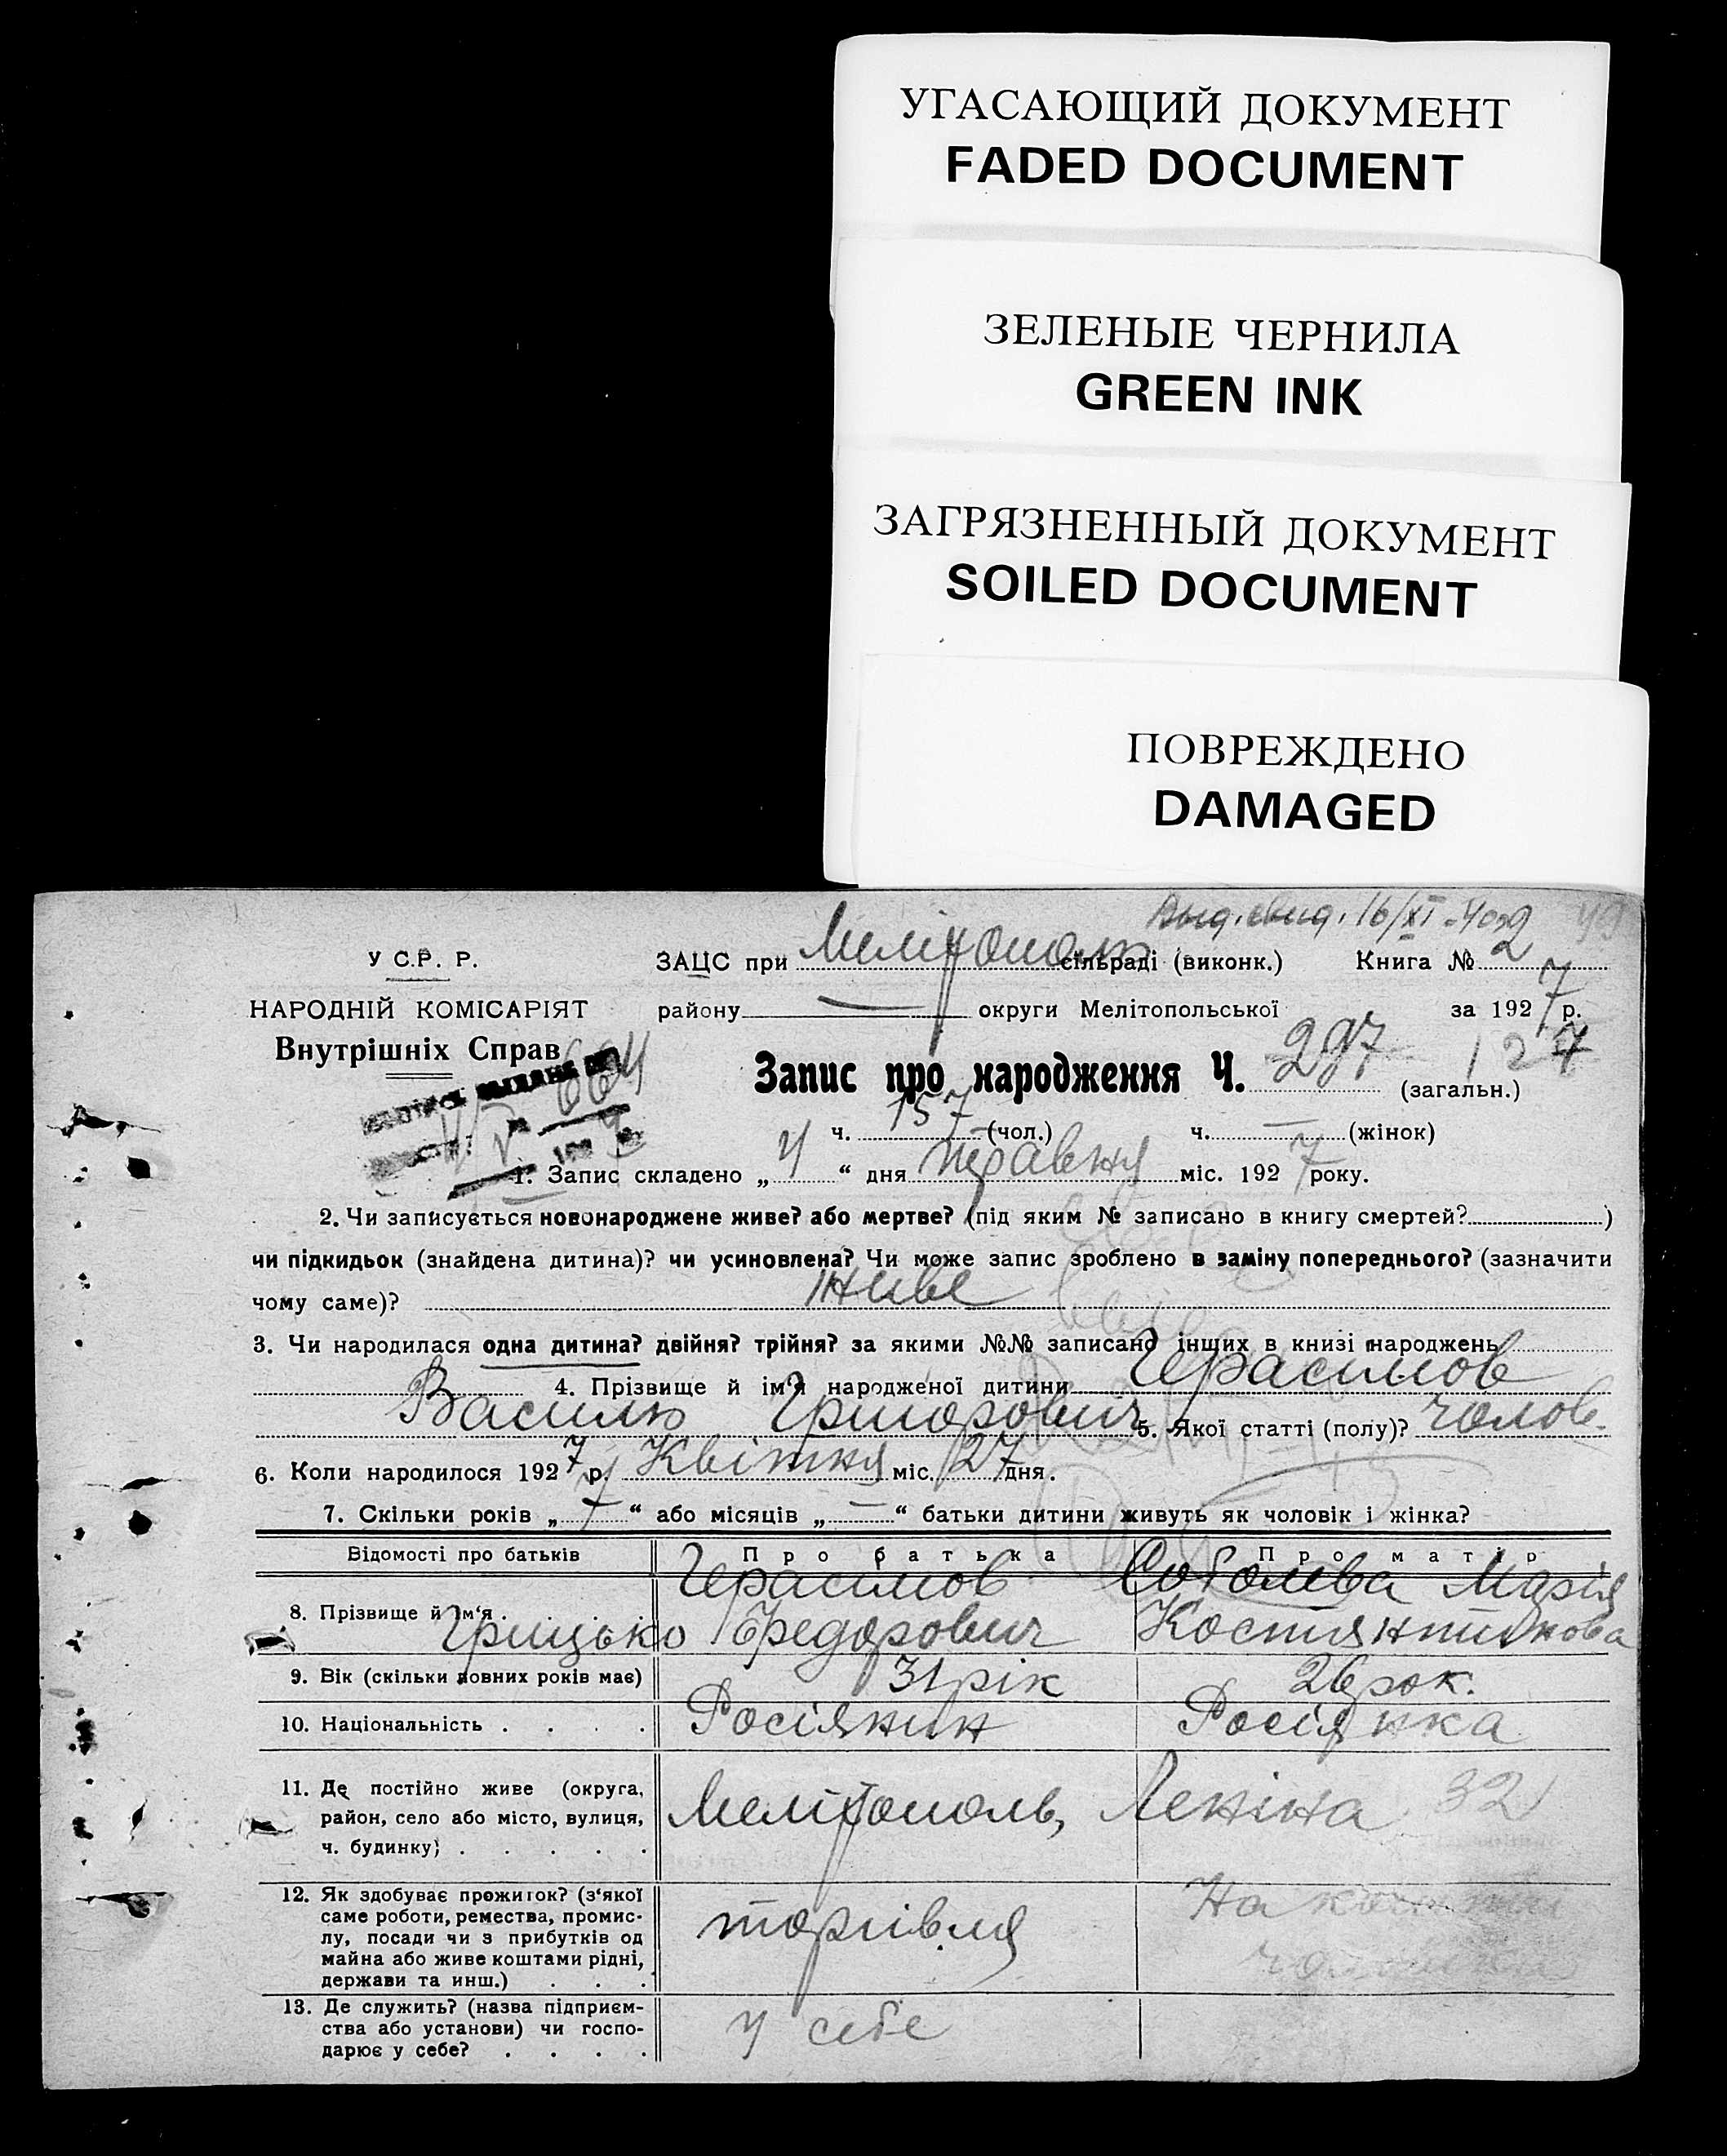 УГАСАЮЩИЙ ДОКУМЕНТ
FADED DOCUMENT
ЗЕЛЕНЫЕ ЧЕРНИЛА
GREEN INK
ЗАГРЯЗНЕННЫЙ ДОКУМЕНТ
SOILED DOCUMENT
ПОВРЕЖДЕНО
DAMAGED
16/XI
У С.Р. Р.
ЗАЦС при Мелітополь сільраді (виконк.) Книга № 2
НАРОДНІЙ КОМІСАРІЯТ
району — округи Мелітопольської за 1927 р.
Внутрішніх Справ
Запис про народження Ч. 297 (загальн.) 127
ч. 157 (чол.) ч. — (жінок)
1. Запис складено „ 4 “ дня травня міс. 1927 року.
2. Чи записується новонароджене живе? або мертве? (під яким № записано в книгу смертей? )
чи підкидьок (знайдена дитина)? чи усиновлена? Чи може запис зроблено в заміну попереднього? (зазначити
чому саме)? живе
3. Чи народилася одна дитина? двійня? трійня? за якими №№ записано інших в книзі народжень
4. Прізвище й ім'я народженої дитини Герасимов
Василь Григорович 5. Якої статті (полу)? чолов.
6. Коли народилося 1927 р. Квітня міс. 27 дня.
7. Скільки років „ 7 “ або місяців „ — “ батьки дитини живуть як чоловік і жінка?
Відомості про батьків Про батька Про матір
8. Прізвище й ім'я Герасимов Соболєва Марія
Грицько Федорович Костянтинова
9. Вік (скільки повних років має) 31 рік 26 рок.
10. Національність . . . . Росіянин Росіянка
11. Де постійно живе (округа,
район, село або місто, вулиця, Мелітополь, Леніна 32
ч. будинку) . . . . .
12. Як здобуває прожиток? (з'якої
саме роботи, ремества, промис-
лу, посади чи з прибутків од
майна або живе коштами рідні,
держави та инш.) . . .
торгівля На
13. Де служить? (назва підприєм-
ства або установи) чи госпо-
дарює у себе? . . . .
у себе